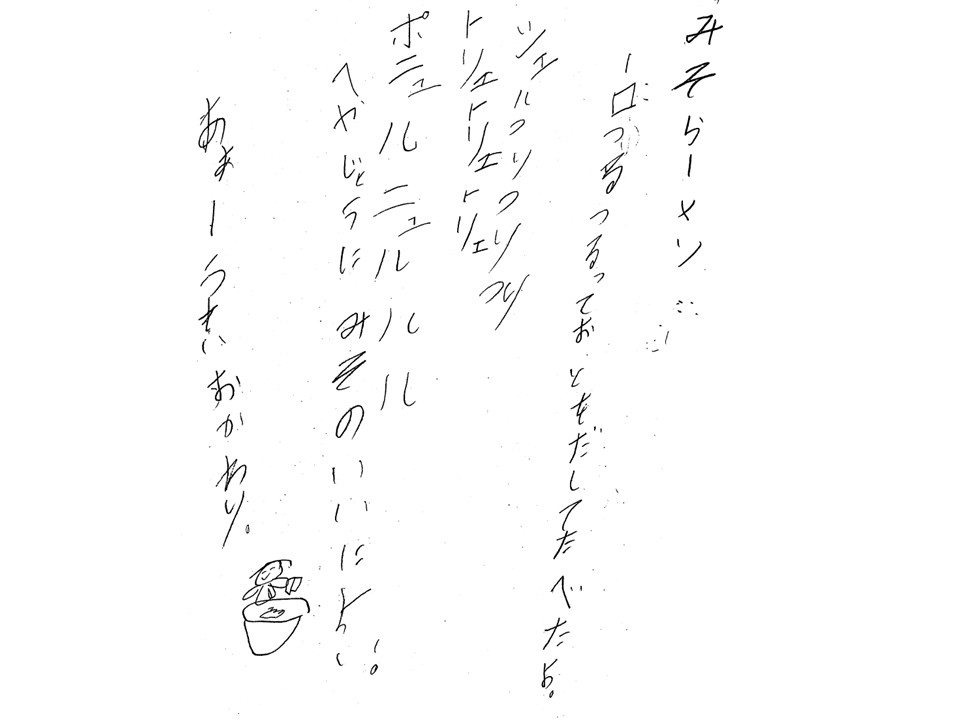 みそらーメン
一口つるつるっておとをだしてたべたよ。
シェルつりつりつり
トリェトリェトリェ
ポニュルニュルルル
へやじゅうにみそのいいにおい。
あぁーうまいおかわり。